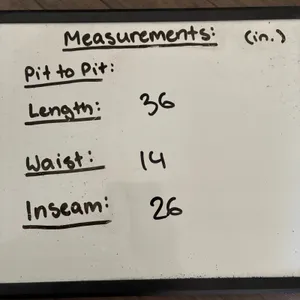 Measurements: (in.)
Pit to Pit:
Length: 36
Waist: 14
Inseam: 26